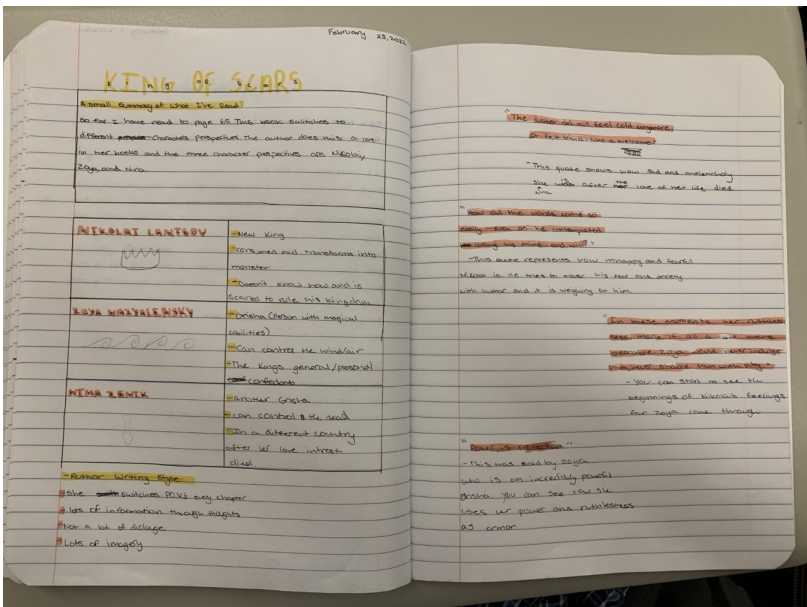 February 23, 2022
KING OF SCARS
A small summary of what I've Read:
So far I have read to page 65. This book switches to
different characters perspectives. The author does this a lot
in her books and the three character perspectives are Nikolai,
Zoya, and Nina.
NIKOLAI LANTSOV
-New King
-consumed and transforms into
monster
-Doesn't know how and is
scared to rule his kingdom
ZOYA NAZYALENSKY
-Grisha (Person with magical
abilities)
-Can control the wind/air
-The Kings general/personal
confedante
NINA ZENIK
-Another Grisha
-can control the dead
-In a different country
after her love intrest
died.
-Author Writing Style
She switches P.O.V's every chapter
lots of information through thoughts
Not a lot of diologe
Lots of imagery
"The water did not feel cold anymore.
It felt like a welcome."
-This quote shows how sad and melencholy
she is after the love of her life died.
Nina
"How did the words come so
easily - even as he contemplated
losing his mind and will?"
-This quote represents how unhappy and fearful
Nikolai is. He tries to mask his fear and anxiety
with humor and it is weighing on him.
"In these moments her ruthless-
ness made it all a bit
because Zoya would never indulge
him, never with pity."
-You can start to see the
beginnings of Nikolai's feelings
for Zoya come through
"Power is protection"
-This was said by Zoya
who is an incredibly powerful
grisha you can see how she
uses her power and ruthlessness
as armor